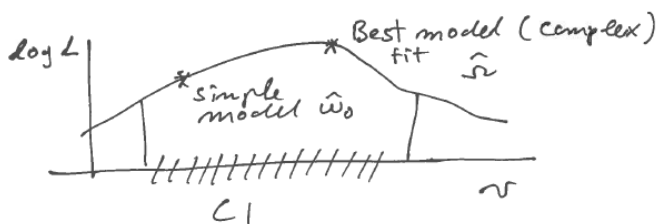 log L
Best model (complex)
fit
Ω̂
simple
model ω̂₀
CI
ν